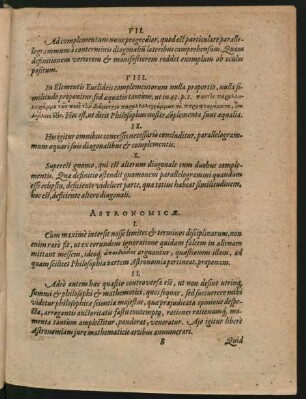 VII.
Ad complementum nunc progredior, quod est particulare parallelogrammum
à conterminis diagonalium lateribus comprehensum. Quam
definitionem veriorem & manifestiorem reddit exemplum ob oculos
positum.
VIII.
In Elementis Euclideis complementorum nulla proportio, nulla similitudo
proponitur, sed aqualitas tantum, ut in 43. p. 1.
Hoc est, ut dixit Philosophus noster, Cōplementa sunt aqualia.
IX.
His igitur omnibus concessis necessario concluditur, parallelogrammum
aquari suis diagonalibus & complementis.
X.
Superest gnomo, qui est alterum diagonale cum duobus complementis.
Qua definitio ostendit gnomonem parallelogrammi quandam
esse eclipsin, deficiente videlicet parte, qua totius habeat similitudinem,
hoc est, deficiente altero diagonali.
ASTRONOMICÆ.
I.
Cum maximè intersit nosse limites & terminos disciplinarum, non
enim rarò fit, ut ex eorundem ignoratione quidam falcem in alienam
mittant messem, ideoq́; arguantur, quastionem illam, ad
quam scilicet Philosophia partem Astronomia pertineat, proponam.
II.
Adeò autem hac quastio controversa est, ut non desint utrinq́;
summi & philosophi & mathematici, quos sequar, sed succurrere mihi
videtur philosophica scientia majestas, qua prajudicata opinione despecta,
arrogantis auctoritatis fastu contempto, rationes rationumq́; momenta
tantum amplectitur, ponderat, veneratur. Ajo igitur liberè
Astronomiam jure mathematicis artibus annumerari.
B Quid